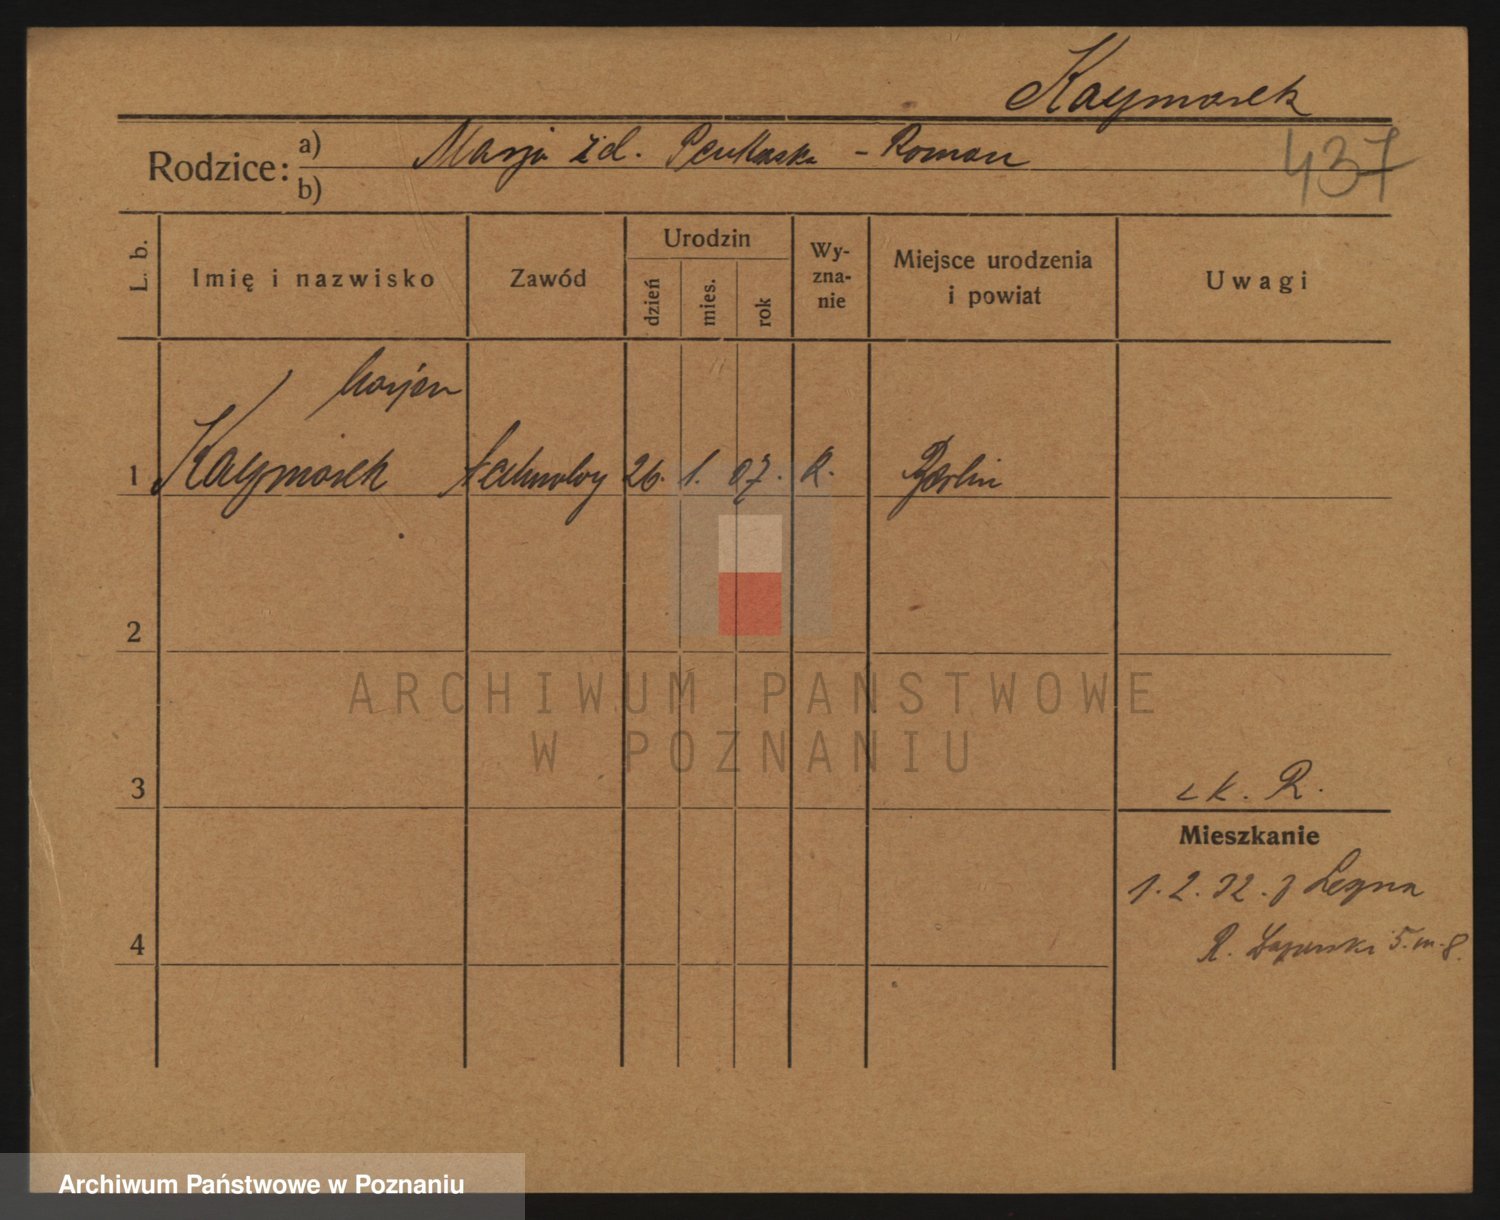 Kaymarek
437
Rodzice: a) Marja zd. - Roman
b)
L. b. Imię i nazwisko Zawód Urodzin dzień mies. rok Wy-zna-nie Miejsce urodzenia i powiat Uwagi
Marjan
1 Kaymarek 26. 1. 07. R. Berlin
2
ARCHIWUM PAŃSTWOWE
W POZNANIU
3
k. R.
Mieszkanie
1. 2. 32. z
4
R. 5. m. 8.
Archiwum Państwowe w Poznaniu